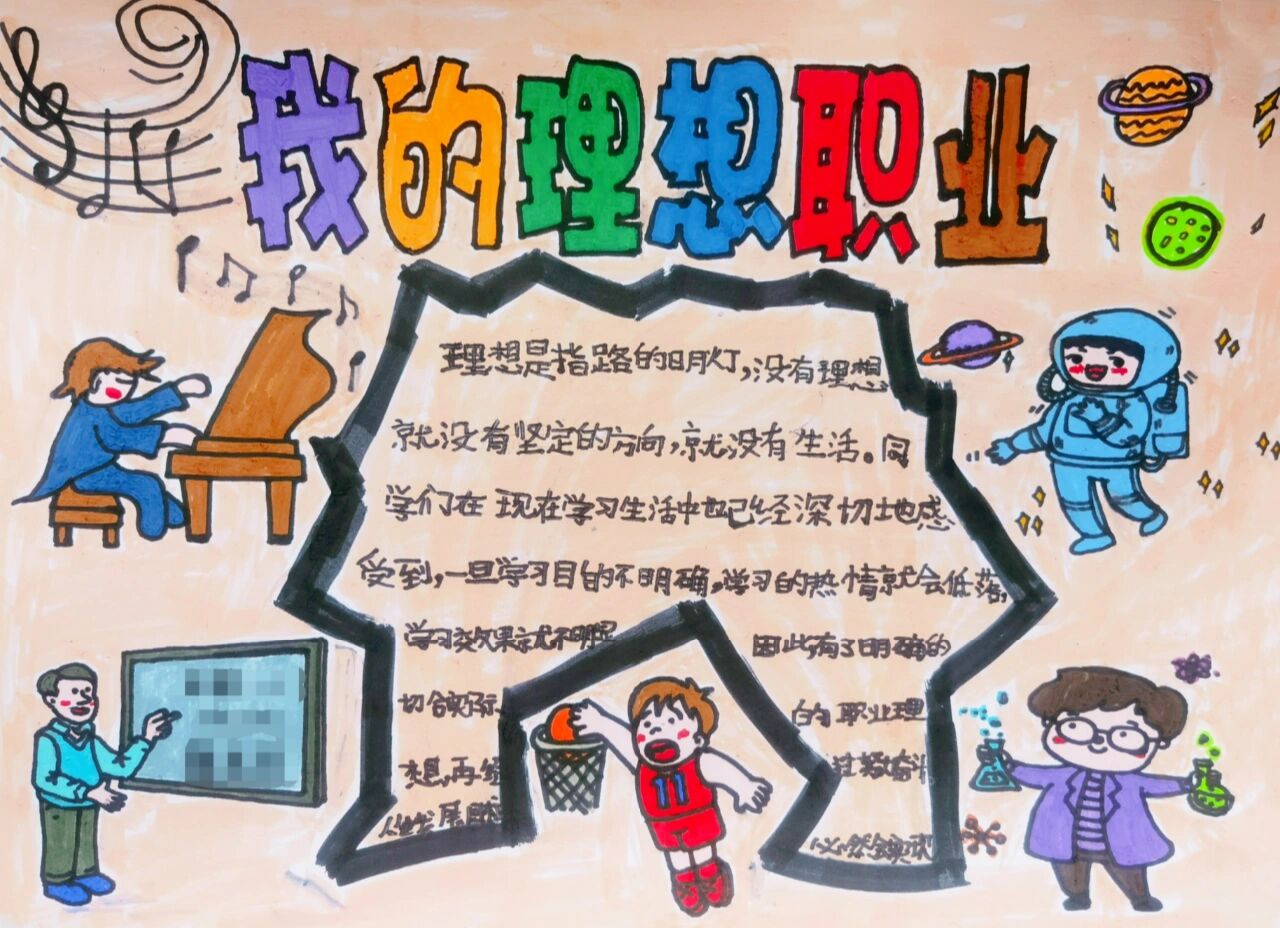 我的理想职业
理想是指路的明灯,没有理想
就没有坚定的方向,就没有生活。同
学们在现在学习生活中也已经深切地感
受到,一旦学习目的不明确,学习的热情就会低落,
学习效果就不明显 因此有了明确的
切合实际 的职业理
想,再经 过努力奋斗
人生发展目标 必然会实现
11